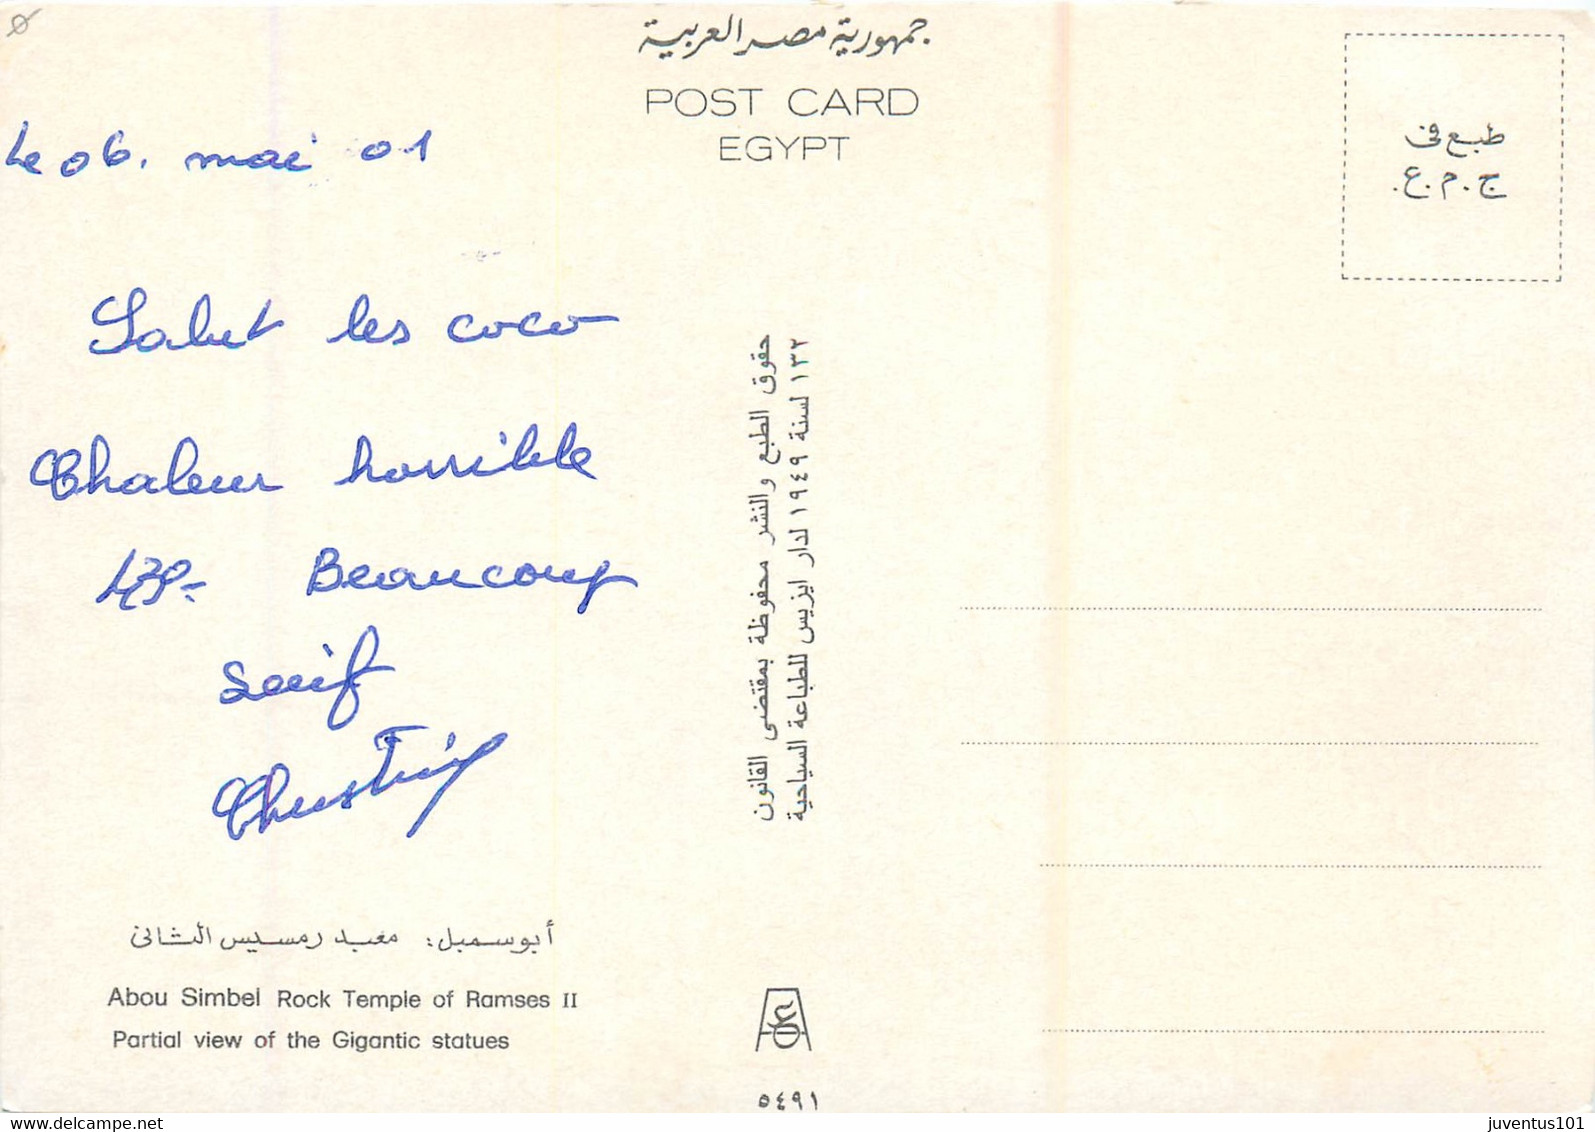 جمهورية مصر العربية
POST CARD
EGYPT
طبع فى
ج.م.ع.
Le 06. mai 01
Salut les coco
Chaleur horrible
43°- Beaucoup
soif
حقوق الطبع والنشر محفوظة بمقتضى القانون
١٣٢ لسنة ١٩٤٩ لدار ايزيس للطباعة السياحية
أبوسمبل: معبد رمسيس الثانى
Abou Simbel Rock Temple of Ramses II
Partial view of the Gigantic statues
٥٤٩١
delcampe.net
juventus101